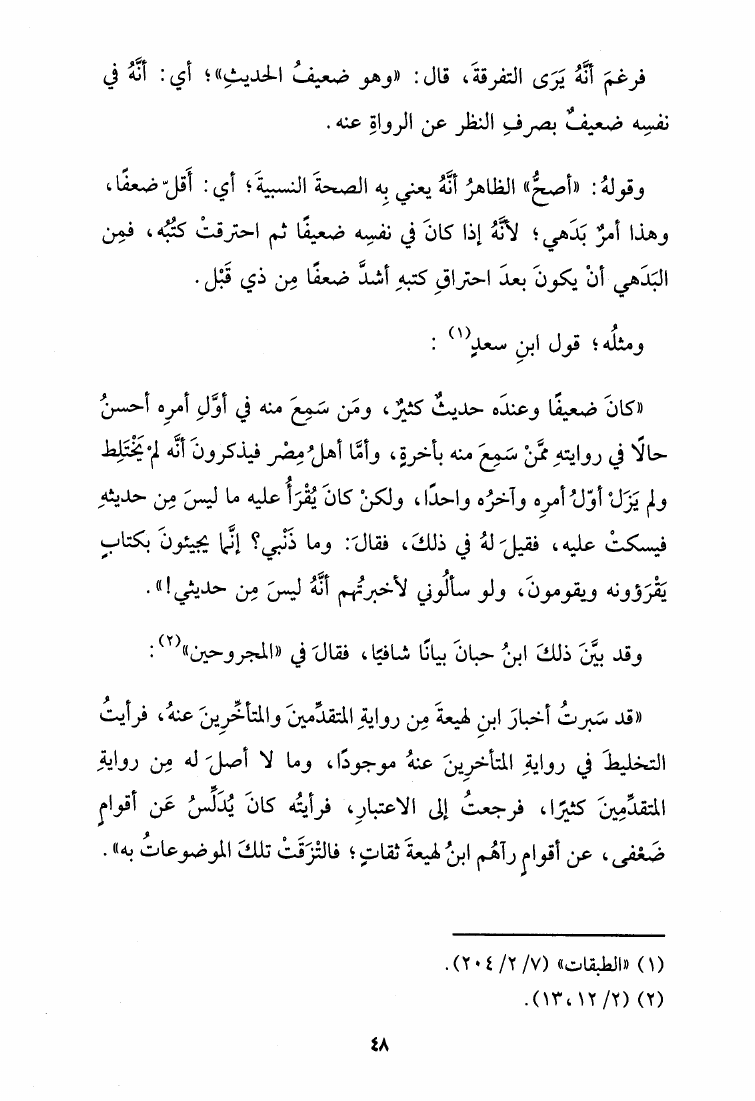 فرغمَ أنَّهُ يَرَى التفرقةَ، قال: «وهو ضعيفُ الحديثِ»؛ أي: أنَّهُ في
نفسِه ضعيفٌ بصرفِ النظر عن الرواةِ عنه.
وقولهُ: «أصحُّ» الظاهرُ أنَّهُ يعني بِه الصحةَ النسبيةَ؛ أي: أَقلّ ضعفًا،
وهذا أمرٌ بَدَهي؛ لأنَّهُ إذا كانَ في نفسِه ضعيفًا ثم احترقتْ كتُبُه، فمِن
البَدَهي أنْ يكونَ بعدَ احتراقِ كتبهِ أشدَّ ضعفًا مِن ذي قَبْل.
ومثلُه؛ قول ابنِ سعدٍ(١) :
«كانَ ضعيفًا وعندَه حديثٌ كثيرٌ، ومَن سَمِعَ منه في أوَّلِ أمرِه أحسنُ
حالًا في روايتهِ ممَّنْ سَمِعَ منه بأخرةٍ، وأمَّا أهلُ مِصْر فيذكرونَ أنَّه لمْ يَخْتَلِط
ولم يَزَلْ أوّلُ أمرِه وآخرُه واحدًا، ولكنْ كانَ يُقْرَأُ عليه ما ليسَ مِن حديثهِ
فيسكتْ عليه، فقيلَ لهُ في ذلكَ، فقالَ: وما ذَنْبي؟ إنَّما يجيئونَ بكتابٍ
يَقْرَؤونه ويقومونَ، ولو سألُوني لأخبرتُهم أنَّهُ ليسَ مِن حديثي!».
وقد بيَّنَ ذلكَ ابنُ حبانَ بيانًا شافيًا، فقالَ في «المجروحين»(٢):
«قد سَبرتُ أخبارَ ابنِ لهيعةَ مِن روايةِ المتقدِّمينَ والمتأخِّرِينَ عنهُ، فرأيتُ
التخليطَ في روايةِ المتأخرِينَ عنهُ موجودًا، وما لا أصلَ له مِن روايةِ
المتقدِّمِينَ كثيرًا، فرجعتُ إلى الاعتبارِ، فرأيتُه كانَ يُدَلِّسُ عَن أقوامٍ
ضَعْفى، عن أقوامٍ رآهُم ابنُ لهيعةَ ثقاتٍ؛ فالتْزَقَتْ تلكَ الموضوعاتُ به».
(١) «الطبقات» (٧/ ٢/ ٢٠٤).
(٢) (٢/ ١٢، ١٣).
٤٨